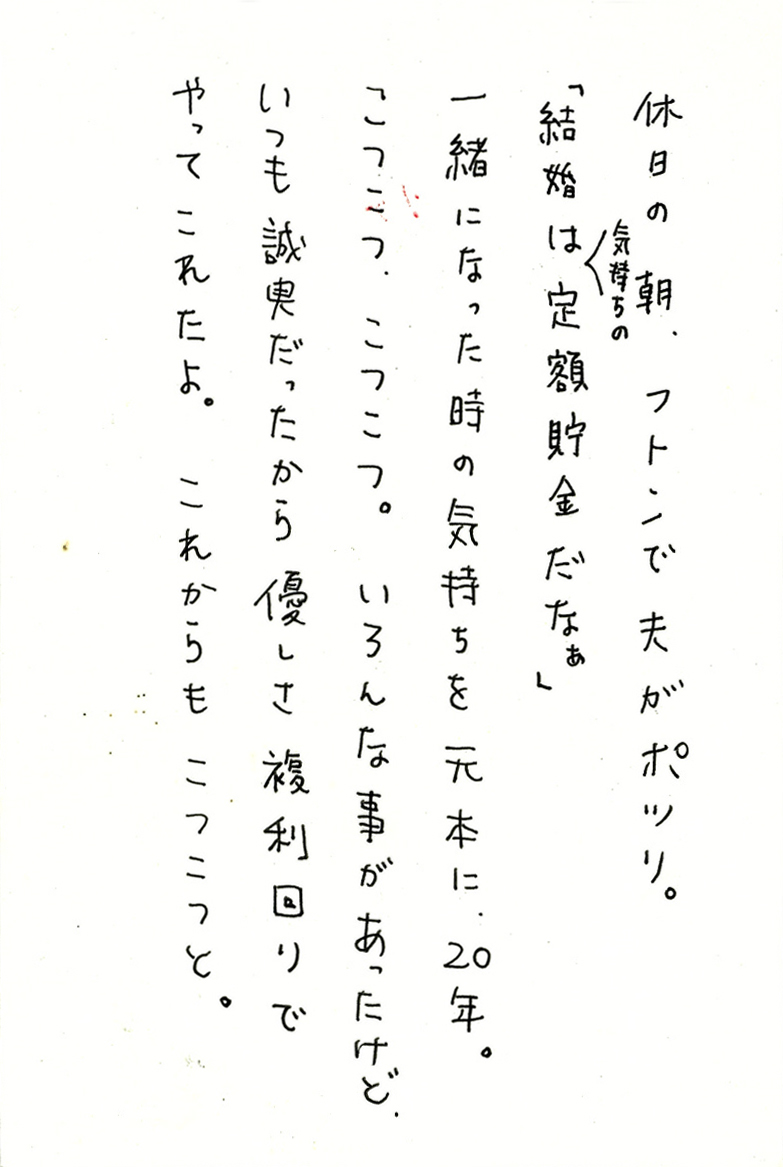 休日の朝、フトンで夫がポツリ。
「結婚は気持ちの定額貯金だなぁ」
一緒になった時の気持ちを元本に、20年。
こつこつ、こつこつ。いろんな事があったけど、
いつも誠実だったから優しさ複利回りで
やってこれたよ。これからもこつこつと。